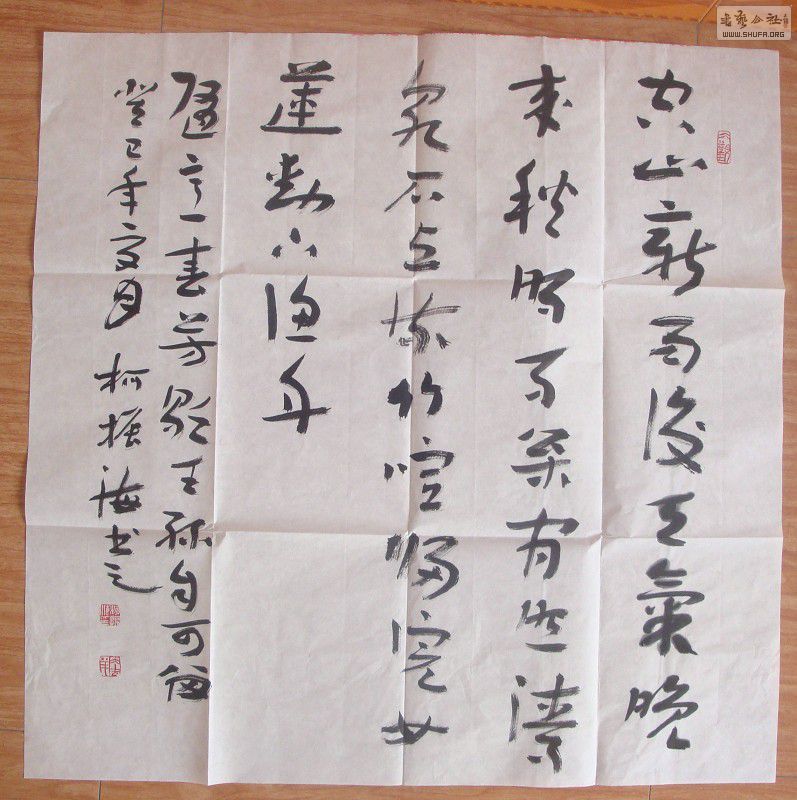 空山新雨後天氣晚
来秋明月松间照清
泉石上流竹喧歸浣女
蓮動下漁舟
随意春芳歇王孫自可留
癸巳年夏月 柯振海书之
书艺公社
WWW.SHUFA.ORG